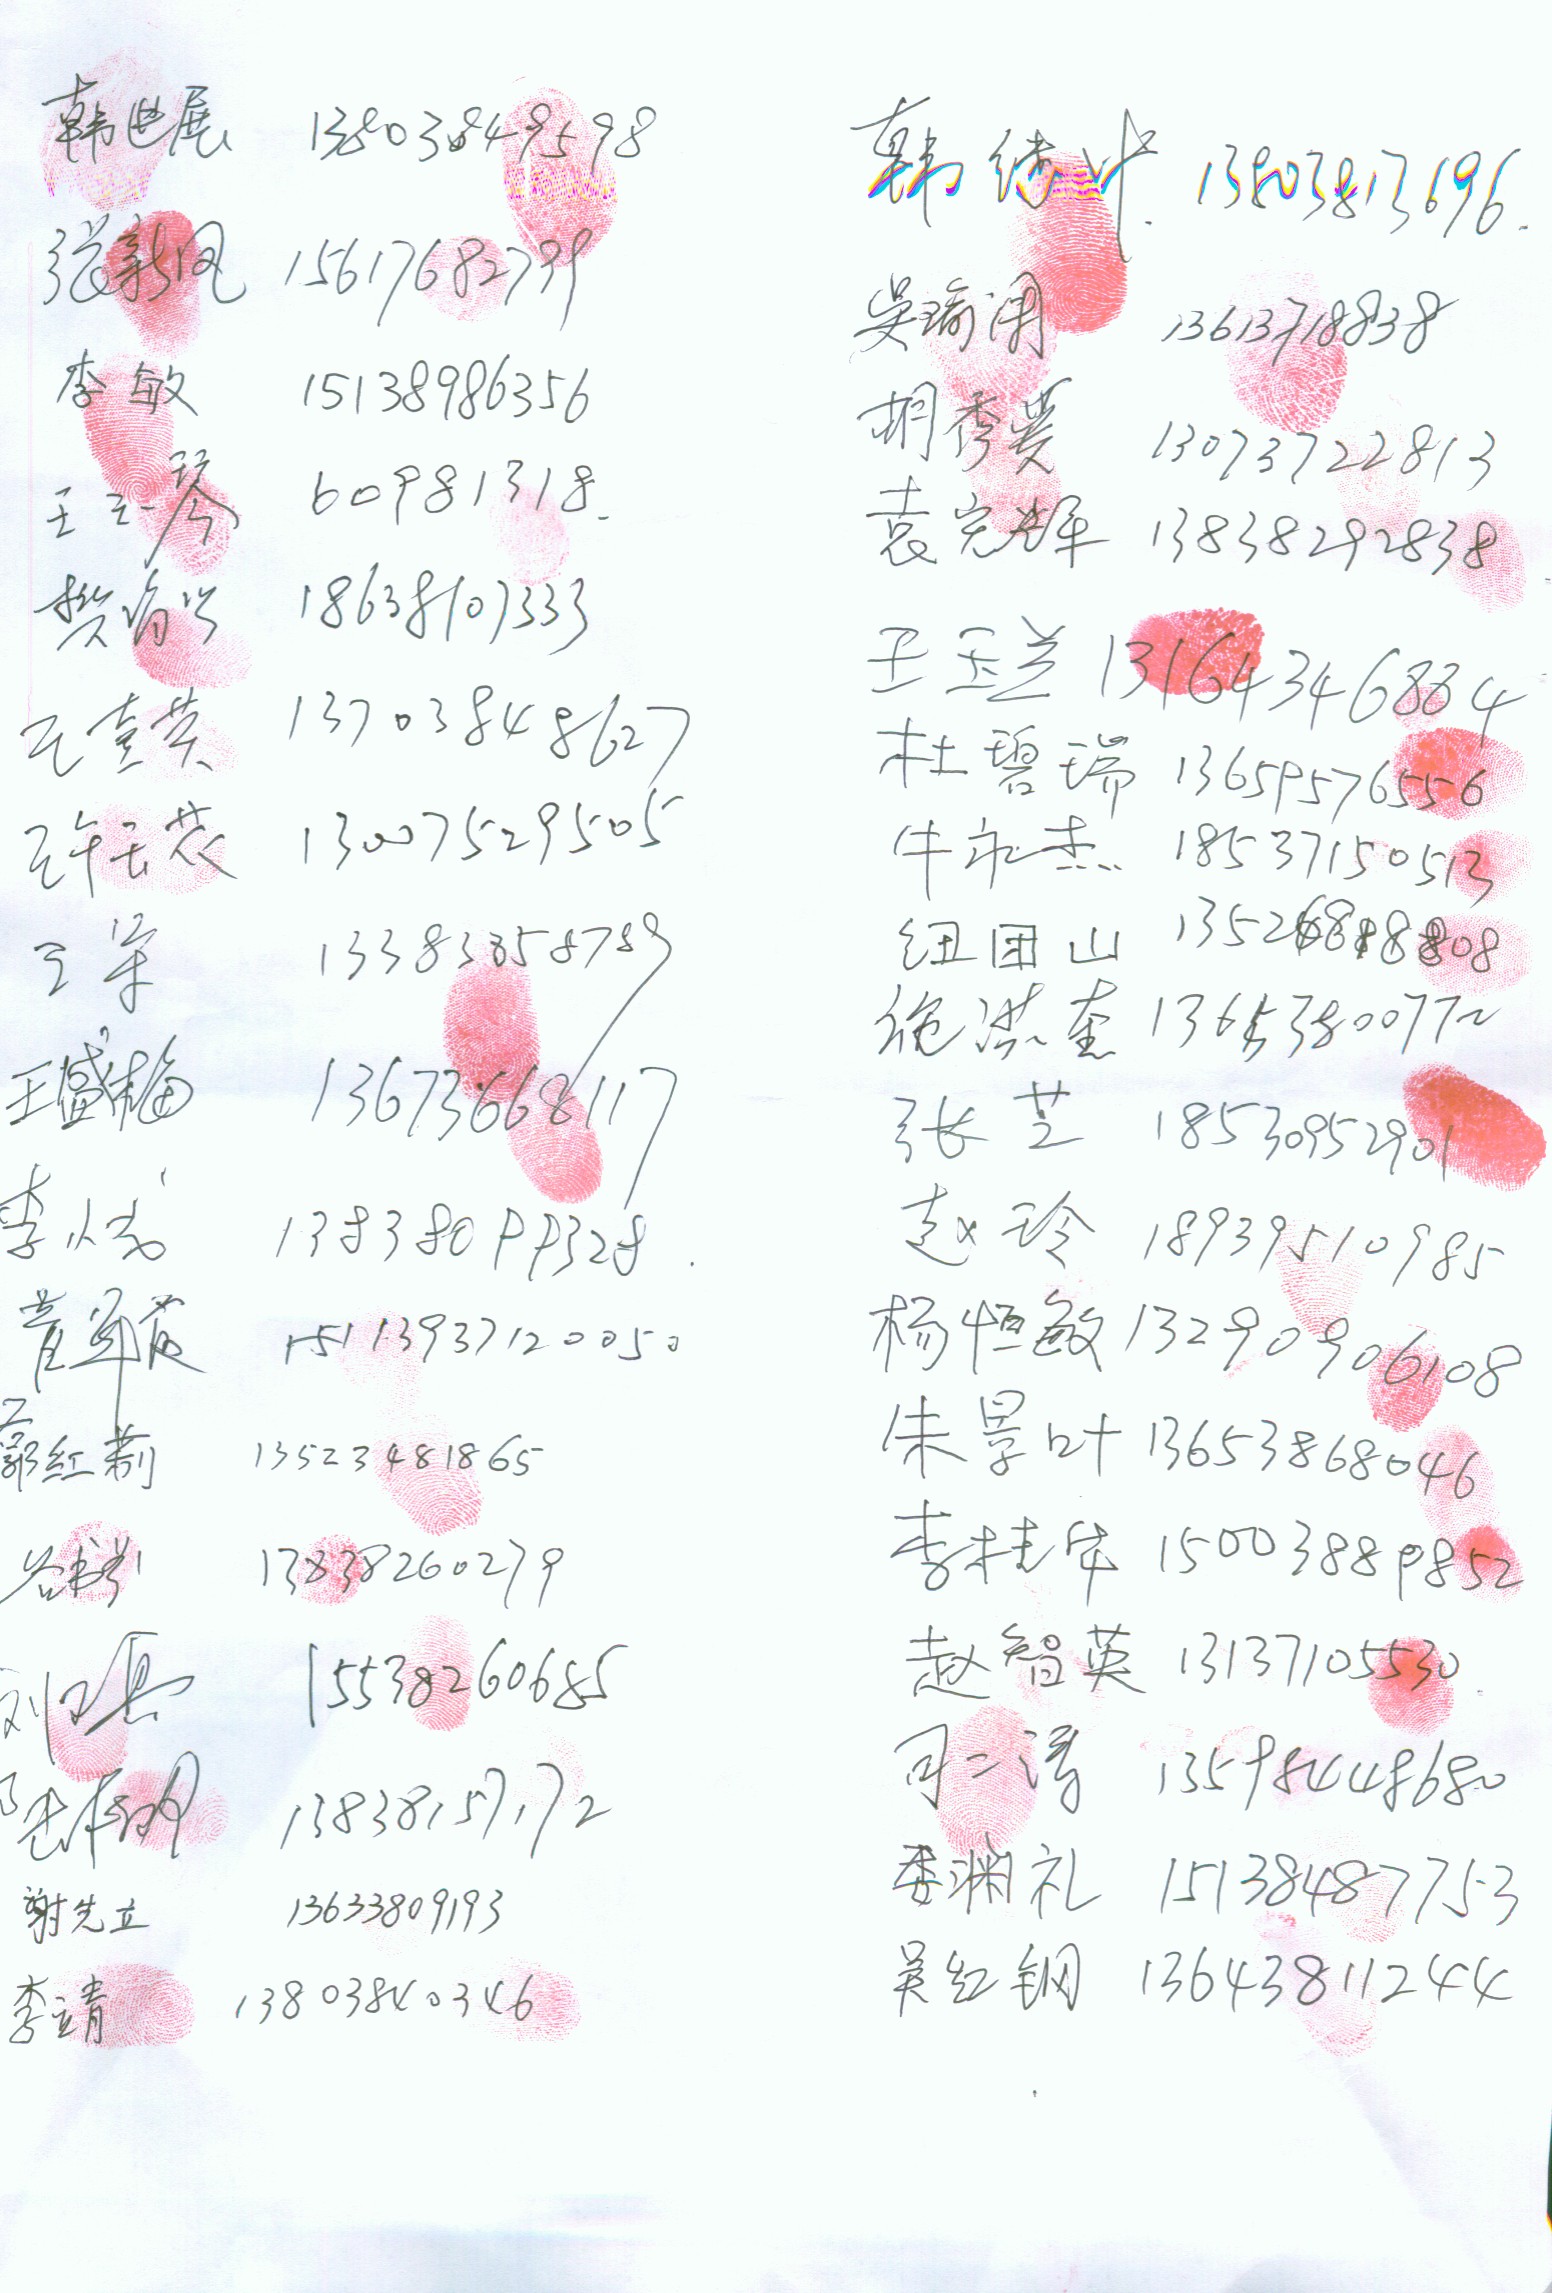 韩世展 13803849598
张新凤 15617682779
李敏 15138986356
王云琴 60981318.
樊 18638107333
王喜英 13703848627
许玉蓉 13007529505
王军 13383858789
王盛梅 13673668117
李成 13838099328.
董 151139371200050
郭红莉 13523481865
谷 13838260279
刘 15538260685
13838157172
谢先立 13633809193
李靖 13803840346
韩 13803813696.
吴瑜闻 13613718838
胡秀美 13073722813
袁宪辉 13838292838
王玉兰 13164346884
杜碧瑞 13659576556
牛永杰 18537150513
纽团山 13526818808
徐洪奎 13653800772
张芝 18530952901
赵玲 18939510985
杨恒敏 13290906108
朱景叶 13653868046
李桂华 15003889852
赵智英 13137105530
司二清 13598448680
李渊礼 15138487753
吴红钢 13643811244